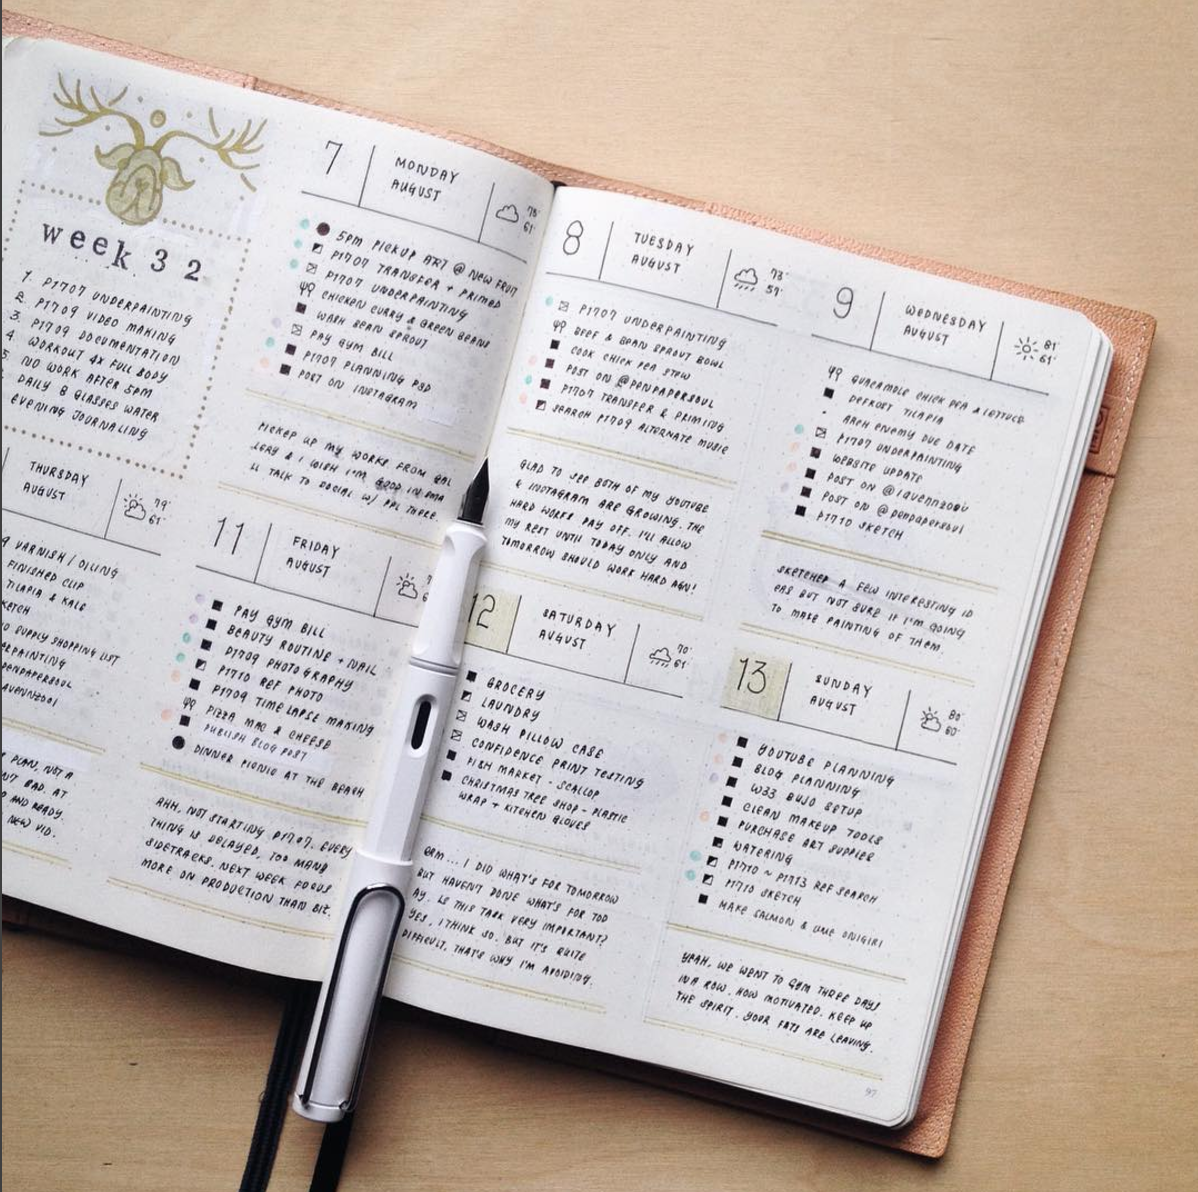 week 32
1. P1707 UNDERPAINTING
2. P1709 VIDEO MAKING
3. P1709 DOCUMENTATION
4. WORKOUT 4X FULL BODY
5. NO WORK AFTER 5PM
DAILY 8 GLASSES WATER
EVENING JOURNALING
7
MONDAY
AUGUST
61°
5PM PICKUP ART @ NEW FRUIT
P1707 TRANSFER + PRIMED
P1707 UNDERPAINTING
CHICKEN CURRY & GREEN BEANS
WASH BEAN SPROUT
PAY GYM BILL
P1709 PLANNING PSD
POST ON INSTAGRAM
PICKED UP MY WORKS FROM GAL
LERY & I WISH I'M GOOD IN SMA
LL TALK TO SOCIAL W/ PPL THERE.
THURSDAY
AUGUST
79°
61°
VARNISH / OILING
FINISHED CLIP
TILAPIA & KALE
SUPPLY SHOPPING LIST
PLAN, NOT A
BAD. AT
AND READY.
NEW VID.
11
FRIDAY
AUGUST
PAY GYM BILL
BEAUTY ROUTINE + NAIL
P1709 PHOTOGRAPHY
P1710 REF PHOTO
P1709 TIME LAPSE MAKING
PIZZA MAC & CHEESE
PUBLISH BLOG POST
DINNER PICNIC AT THE BEACH
AHH, NOT STARTING P1707. EVERY
THING IS DELAYED, TOO MANY
SIDETRACKS. NEXT WEEK FOCUS
MORE ON PRODUCTION THAN BIZ.
8
TUESDAY
AUGUST
73°
59°
P1707 UNDERPAINTING
BEEF & BEAN SPROUT BOWL
COOK CHICK PEA STEW
POST ON @PENPAPERSOUL
P1707 TRANSFER & PRIMING
SEARCH P1709 ALTERNATE MUSIC
GLAD TO SEE BOTH OF MY YOUTUBE
& INSTAGRAM ARE GROWING. THE
HARD WORKS PAY OFF. I'LL ALLOW
MY REST UNTIL TODAY ONLY AND
TOMORROW SHOULD WORK HARD AGN!
9
WEDNESDAY
AUGUST
81°
61°
GUACAMOLE CHICK PEA & LETTUCE
DEFROST TILAPIA
ARCH ENEMY DUE DATE
P1707 UNDERPAINTING
WEBSITE UPDATE
POST ON @lavennz001
POST ON @penpapersoul
P1710 SKETCH
SKETCHED A FEW INTERESTING ID
EAS BUT NOT SURE IF I'M GOING
TO MAKE PAINTING OF THEM.
12
SATURDAY
AUGUST
70°
61°
GROCERY
LAUNDRY
WASH PILLOW CASE
CONFIDENCE PRINT TESTING
FISH MARKET - SCALLOP
CHRISTMAS TREE SHOP - PLASTIC
WRAP + KITCHEN GLOVES
ERM... I DID WHAT'S FOR TOMORROW
BUT HAVEN'T DONE WHAT'S FOR TOD
AY. IS THIS TASK VERY IMPORTANT?
YES, I THINK SO. BUT IT'S QUITE
DIFFICULT, THAT'S WHY I'M AVOIDING.
13
SUNDAY
AUGUST
80°
60°
YOUTUBE PLANNING
BLOG PLANNING
W33 BUJO SETUP
CLEAN MAKEUP TOOLS
PURCHASE ART SUPPIER
WATERING
P1710 ~ P1713 REF SEARCH
P1710 SKETCH
MAKE SALMON & UME ONIGIRI
YEAH, WE WENT TO GYM THREE DAYS
IN A ROW. HOW MOTIVATED. KEEP UP
THE SPIRIT. YOUR FATS ARE LEAVING.
97